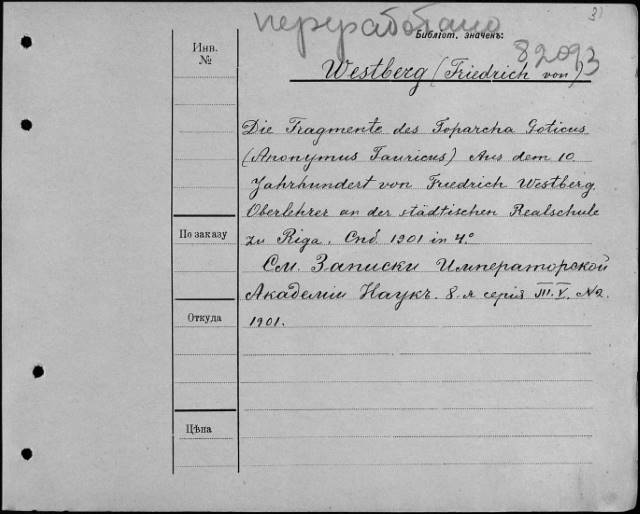 переработано
3)
Библіот. значенъ:
82093
Инв.
№
Westberg (Friedrich von)
Die Fragmente des Toparcha Goticus
(Anonymus Tauricus) Aus dem 10.
Jahrhundert von Friedrich Westberg.
Oberlehrer an der städtischen Realschule
zu Riga. Спб. 1901 in 4.º
См. Записки Императорской
Академіи Наукъ. 8-я серія III. V. № 2.
1901.
По заказу
Откуда
Цѣна